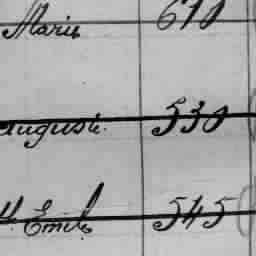 Marie 610
Auguste. 530
H. Emil, 545